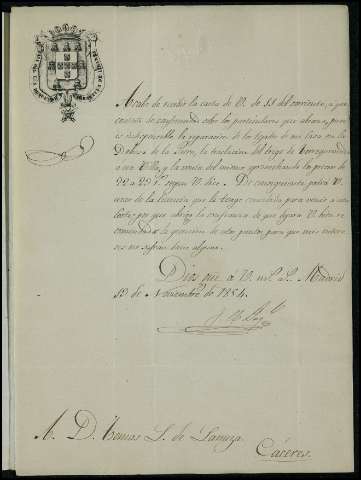 Acabo de recibir la carta de V. de 11 del corriente, a que
contesto de conformidad sobre los particulares que abraza, pues
es indispensable la reparacion de los tejados de mi casa en la
Dehesa de la la traslacion del trigo de
a esa Villa, y la venta del mismo aprovechando los precios de
22 a 23 rs. segun V. dice. De consiguiente podrá V.
usar de la licencia que le tengo concedida para venir a esta
Corte; por que abrigo la confianza de que dejara V. bien en
comendada la gestion de esos puntos, para que mis intere
ses no sufran daño alguno.
Dios gue. a V. ms. as. Madrid
13 de Noviembre de 1854.
S. D. Tomas S. de Lanuza.
Cáceres.